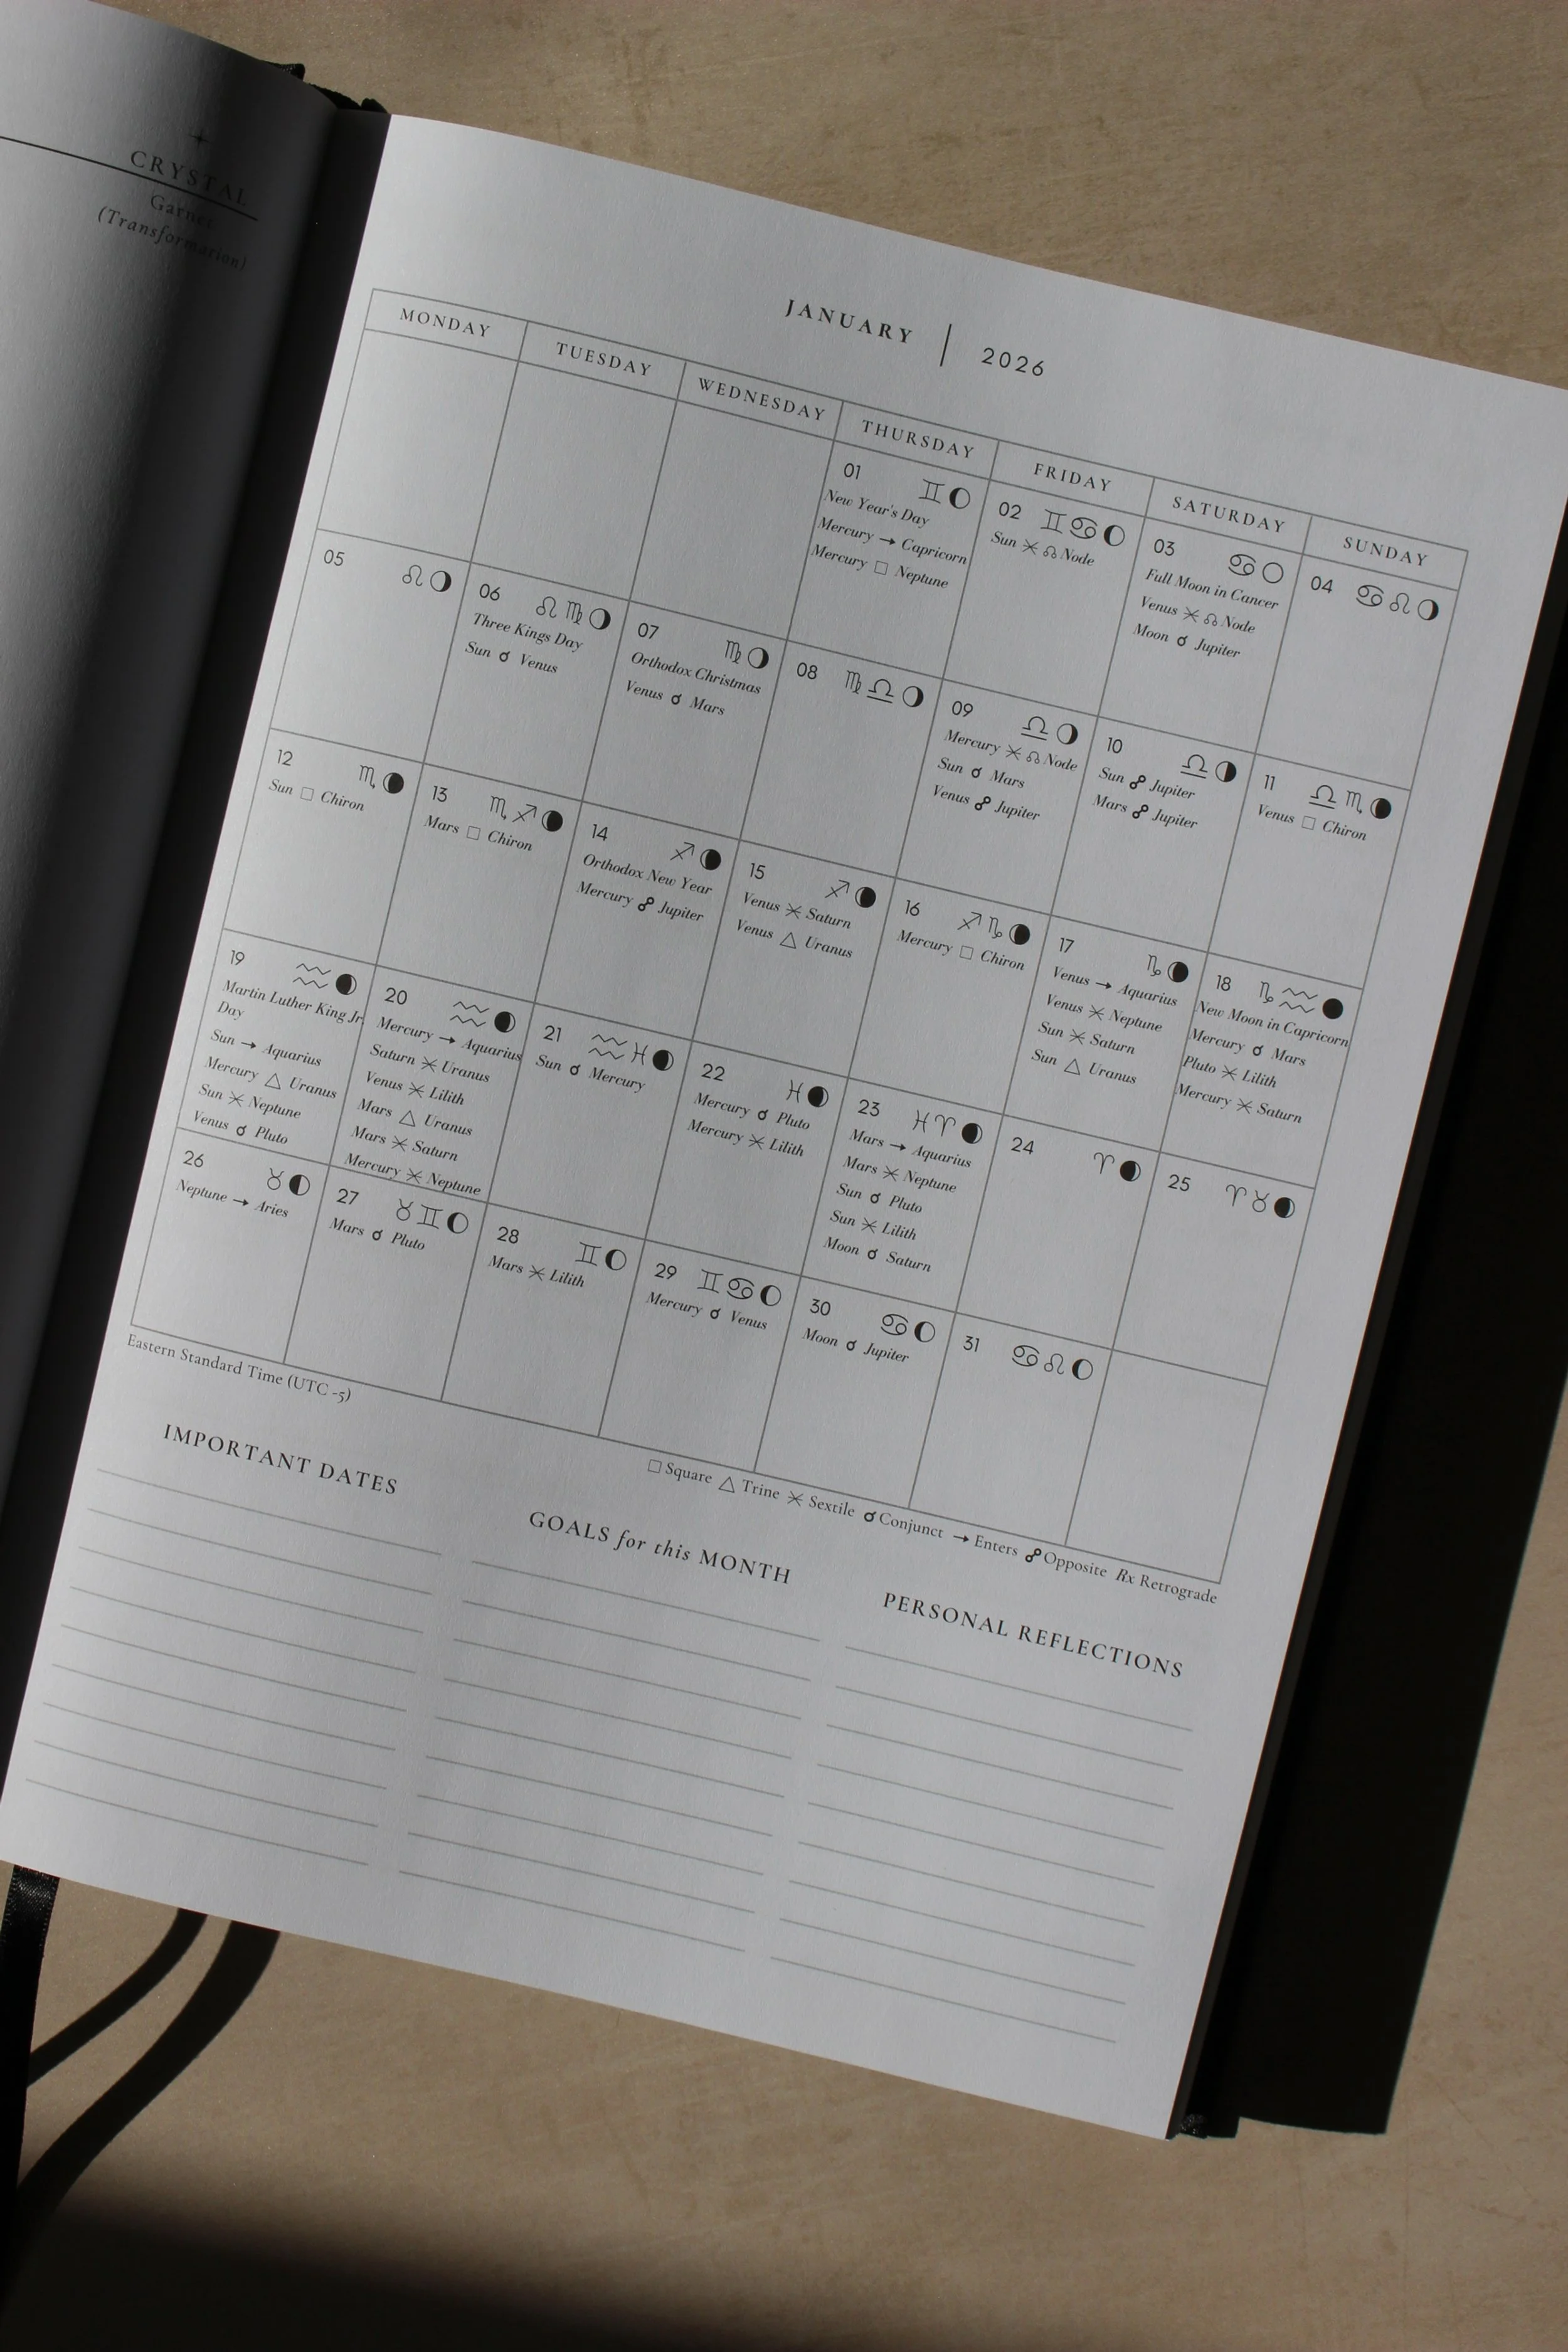 CRYSTAL
Garnet
(Transformation)
JANUARY | 2026
MONDAY
TUESDAY
WEDNESDAY
THURSDAY
FRIDAY
SATURDAY
SUNDAY
01 ♊
New Year's Day
Mercury → Capricorn
Mercury □ Neptune
02 ♊♋
Sun ⚹ ☊ Node
03 ♋
Full Moon in Cancer
Venus ⚹ ☊ Node
Moon ☌ Jupiter
04 ♋♌
05 ♌
06 ♌♍
Three Kings Day
Sun ☌ Venus
07 ♍
Orthodox Christmas
Venus ☌ Mars
08 ♍♎
09 ♎
Mercury ⚹ ☊ Node
Sun ☌ Mars
Venus ☍ Jupiter
10 ♎
Sun ☍ Jupiter
Mars ☍ Jupiter
11 ♎♏
Venus □ Chiron
12 ♏
Sun □ Chiron
13 ♏♐
Mars □ Chiron
14 ♐
Orthodox New Year
Mercury ☍ Jupiter
15 ♐
Venus ⚹ Saturn
Venus △ Uranus
16 ♐♑
Mercury □ Chiron
17 ♑
Venus → Aquarius
Venus ⚹ Neptune
Sun ⚹ Saturn
Sun △ Uranus
18 ♑♒
New Moon in Capricorn
Mercury ☌ Mars
Pluto ⚹ Lilith
Mercury ⚹ Saturn
19 ♒
Martin Luther King Jr.
Day
Sun → Aquarius
Mercury △ Uranus
Sun ⚹ Neptune
Venus ☌ Pluto
20 ♒
Mercury → Aquarius
Saturn ⚹ Uranus
Venus ⚹ Lilith
Mars △ Uranus
Mars ⚹ Saturn
Mercury ⚹ Neptune
21 ♒♓
Sun ☌ Mercury
22 ♓
Mercury ☌ Pluto
Mercury ⚹ Lilith
23 ♓♈
Mars → Aquarius
Mars ⚹ Neptune
Sun ☌ Pluto
Sun ⚹ Lilith
Moon ☌ Saturn
24 ♈
25 ♈♉
26 ♉
Neptune → Aries
27 ♉♊
Mars ☌ Pluto
28 ♊
Mars ⚹ Lilith
29 ♊♋
Mercury ☌ Venus
30 ♋
Moon ☌ Jupiter
31 ♋♌
Eastern Standard Time (UTC -5)
□ Square △ Trine ⚹ Sextile ☌ Conjunct → Enters ☍ Opposite Rx Retrograde
IMPORTANT DATES
GOALS for this MONTH
PERSONAL REFLECTIONS